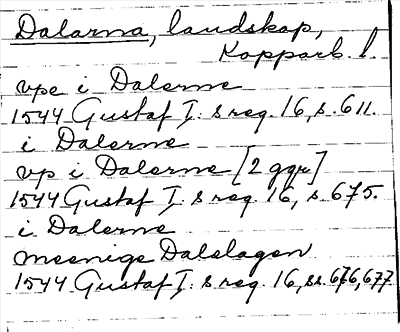 Dalarna, landskap,
Kopparb. l.
vpe i Dalerne
1544 Gustaf I:s reg. 16, s. 611.
i Dalerne
vp i Dalerne [2 ggr]
1544 Gustaf I:s reg. 16, s. 675.
i Dalerne
meenige Dalslagen
1544 Gustaf I:s reg. 16, ss. 676, 677